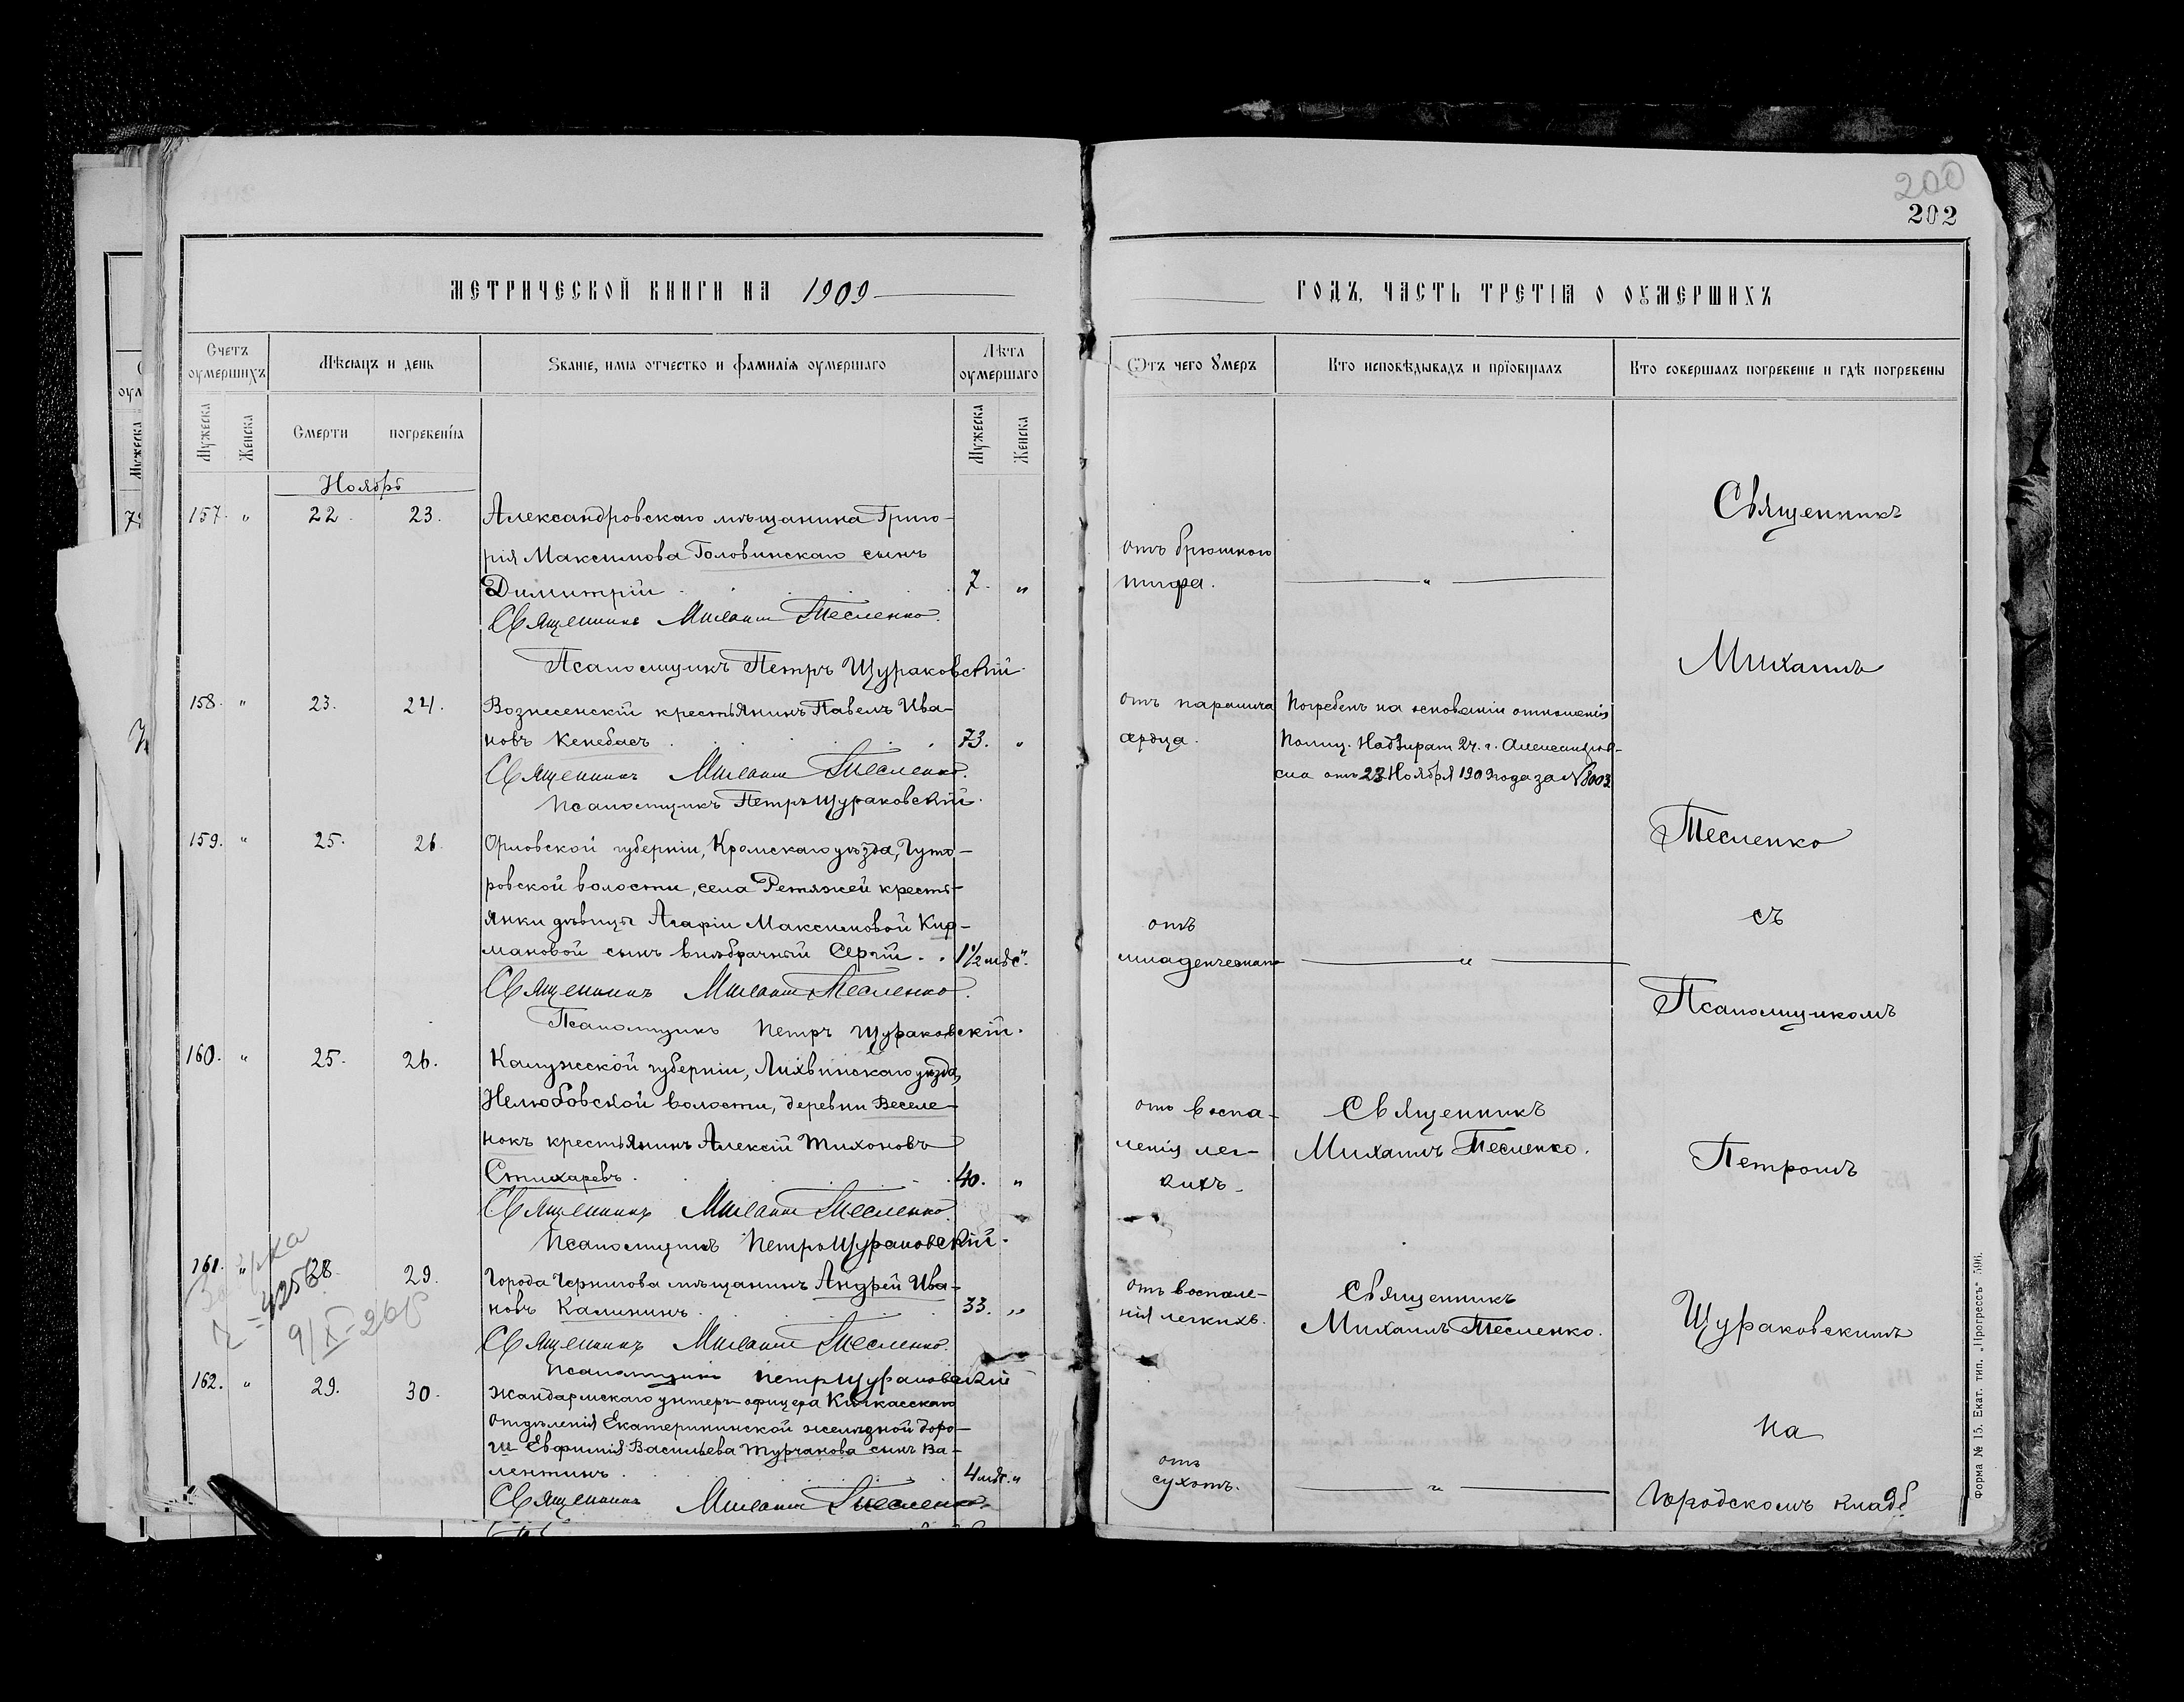 200
202
МЕТРИЧЕСКОЙ КНИГИ НА 1909
ГОДЪ, ЧАСТЬ ТРЕТІЯ О ОУМЕРШИХЪ
Счетъ оумершихъ
Мѣсяцъ и день
Званіе, имя отчество и фамилія оумершаго
Лѣта оумершаго
Отъ чего умеръ
Кто исповѣдывалъ и пріобщалъ
Кто совершалъ погребеніе и гдѣ погребены
Мужеска
Женска
Смерти
погребенія
Мужеска
Женска
Ноябрь
157. " 22. 23. Александровскаго мѣщанина Григо-
рія Максимова Головинскаго сынъ
Димитрій . . . . 7. "
отъ брюшного
тифа. "
Священникъ Михаилъ Тесленко.
Псаломщикъ Петръ Щураковскій.
158. " 23. 24. Вознесенскій крестьянинъ Павелъ Ива-
новъ Кенебасъ . . . . 73. "
отъ паралича
сердца.
Погребенъ на основаніи отношенія
Полиц. Надзират 2ч. г. Александров-
ска отъ 23 Ноября 1909 года за № 8003
Священникъ Михаилъ Тесленко.
Псаломщикъ Петръ Щураковскій.
159. " 25. 26. Орловской губерніи, Кромскаго уѣзда, Гуто-
ровской волости, села Ретяжей крестъ-
янки дѣвицы Агафіи Максимовой Кир-
мановой сынъ внѣбрачный Сергій . . 1½ мѣс. "
отъ
младенческаго "
Священникъ Михаилъ Тесленко.
Псаломщикъ Петръ Щураковскій.
160. " 25. 26. Калужской губерніи, Лихвинскаго уѣзда,
Нелюбовской волости, деревни Веселе-
нокъ крестьянинъ Алексій Тихоновъ
Стихаревъ . . . . 40. "
отъ воспа-
ленія лег-
кихъ.
Священникъ
Михаилъ Тесленко.
Священникъ Михаилъ Тесленко
Псаломщикъ Петръ Щураковскій.
161. " 28. 29. Города Чернигова мѣщанинъ Андрей Ива-
новъ Калининъ . . . . 33. "
отъ воспале-
нія легкихъ.
Священникъ
Михаилъ Тесленко.
Священникъ Михаилъ Тесленко.
Псаломщикъ Петръ Щураковскій
162. " 29. 30. Жандармскаго унтеръ-офицера Кичкасскаго
отдѣленія Екатерининской желѣзной доро-
ги Евфимія Васильева Турчанова сынъ Ва-
лентинъ . . . . 4 мѣс. "
отъ
сухотъ. "
Священникъ Михаилъ Тесленко.
Священникъ
Михаилъ
Тесленко
съ
Псаломщикомъ
Петромъ
Щураковскимъ
на
Городскомъ кладб.
Форма № 15. Екат. тип. „Прогрессъ" 596.